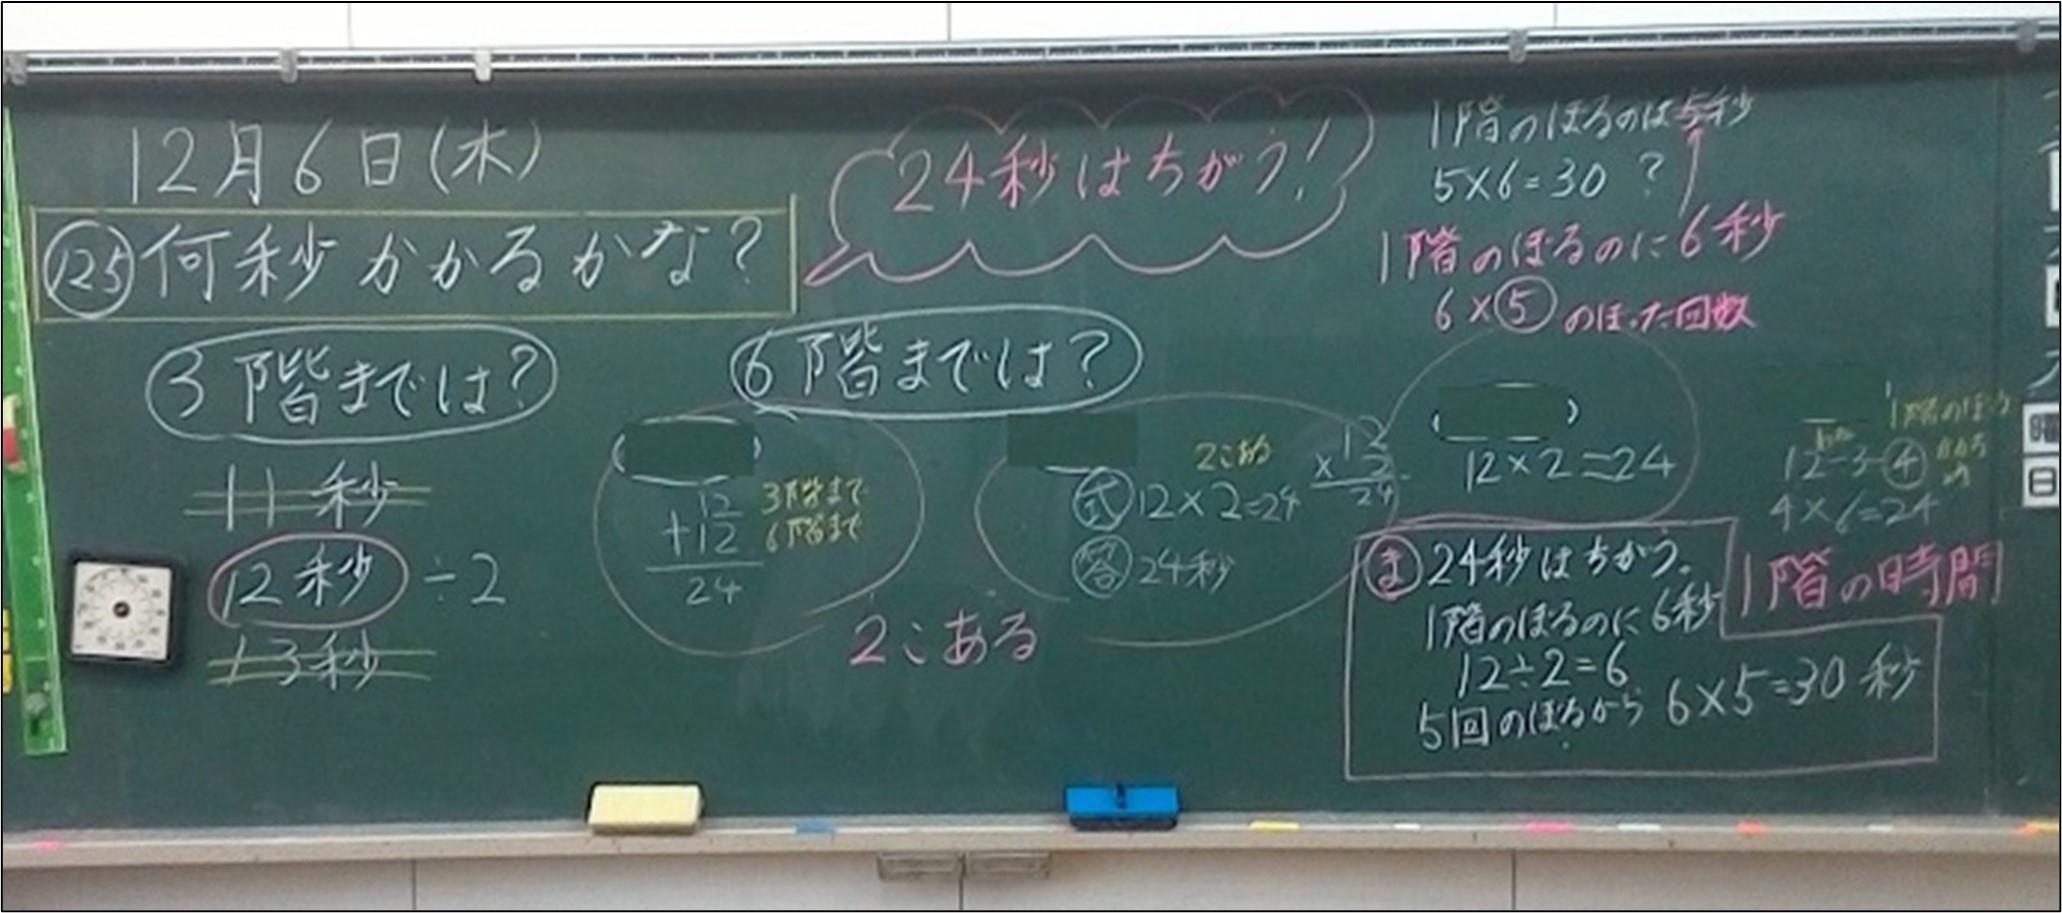 12月6日(木)
125 何秒かかるかな?
3階までは?
11秒
12秒 ÷2
13秒
24秒はちがう!
6階までは?
12
+12
24
3階まで
6階まで
2こある
式 12×2=24
答 24秒
12
×2
24
2こある
12×2=24
1階のぼるのは5秒
5×6=30 ?
1階のぼるのに6秒
6×5 のぼった回数
12÷3=4
4×6=24
1階の時間
ま 24秒はちがう。
1階のぼるのに6秒
12÷2=6
5回のぼるから 6×5=30秒
曜
日